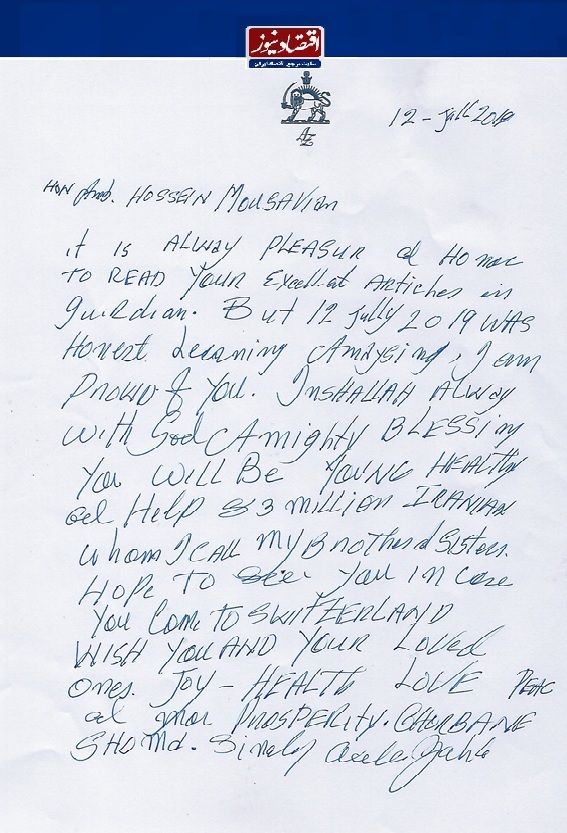 اقتصادنیوز
سایت مرجع اقتصاد ایران
AZ
12 - Jull 2019
HON Amb. HOSSEIN MOUSAVIAN
it is ALWAY PLEASUR ad Honor
TO READ YOUR Excellat ARTicles in
gurdian. But 12 Jully 2019 WAS
Honest Learning Amaysing, I am
PROWD of YOU. INSHALLAH ALWAY
with God Amighty BLESSing
You WILL BE YOUNG HEALTHy
ad Help 83 million IRANIAN
whom I CALL My BROTHER d SisTers.
HOPE TO See YOU IN Case
You Come TO SWITZERLAND
WISH YOU AND YOUR LOVED
Ones. JOY - HEALTH LOVE PEAC
ad mor PROSPERITY. GHORBANE
SHOMA.